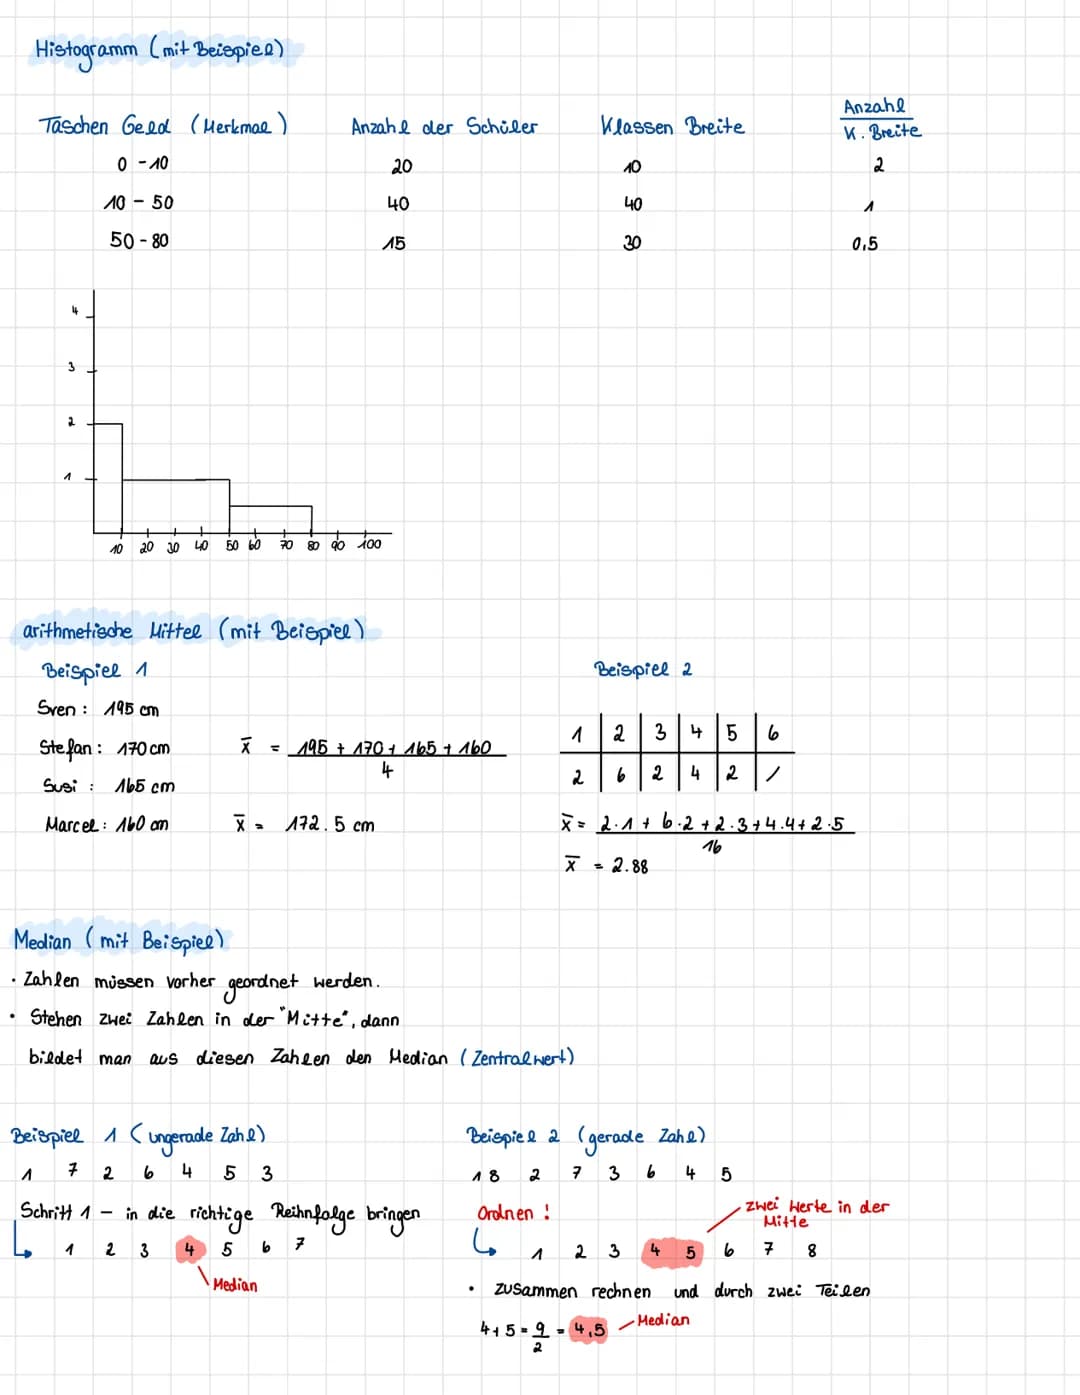 Histogramm (mit Beispiel)
Taschen Geld (Merkmal) Anzahl der Schüler Klassen Breite Anzahl / K. Breite
0 - 10 20 10 2
10 - 50 40 40 1
50 - 80 15 30 0,5
4
3
2
1
10 20 30 40 50 60 70 80 90 100
arithmetische Mittel (mit Beispiel)
Beispiel 1
Sven : 195 cm
Stefan : 170 cm
Susi : 165 cm
Marcel : 160 cm
x̄ = (195 + 170 + 165 + 160) / 4
x̄ = 172.5 cm
Beispiel 2
1 | 2 | 3 | 4 | 5 | 6
2 | 6 | 2 | 4 | 2 | /
x̄ = (2·1 + 6·2 + 2·3 + 4·4 + 2·5) / 16
x̄ = 2.88
Median (mit Beispiel)
· Zahlen müssen vorher geordnet werden.
· Stehen zwei Zahlen in der "Mitte", dann
bildet man aus diesen Zahlen den Median (Zentralwert)
Beispiel 1 (ungerade Zahl)
1 7 2 6 4 5 3
Schritt 1 - in die richtige Reihnfolge bringen
↳ 1 2 3 4 5 6 7
Median
Beispiel 2 (gerade Zahl)
1 8 2 7 3 6 4 5
Ordnen !
zwei Werte in der
Mitte
↳ 1 2 3 4 5 6 7 8
· zusammen rechnen und durch zwei Teilen
4+5 = 9/2 = 4,5
Median